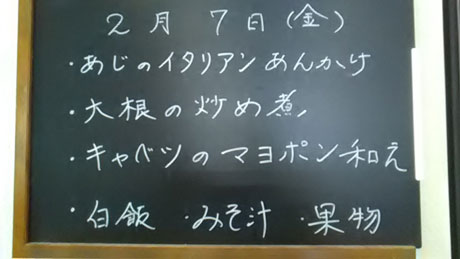 2月 7日(金)
・あじのイタリアンあんかけ
・大根の炒め煮
・キャベツのマヨポン和え
・白飯 ・みそ汁 ・果物